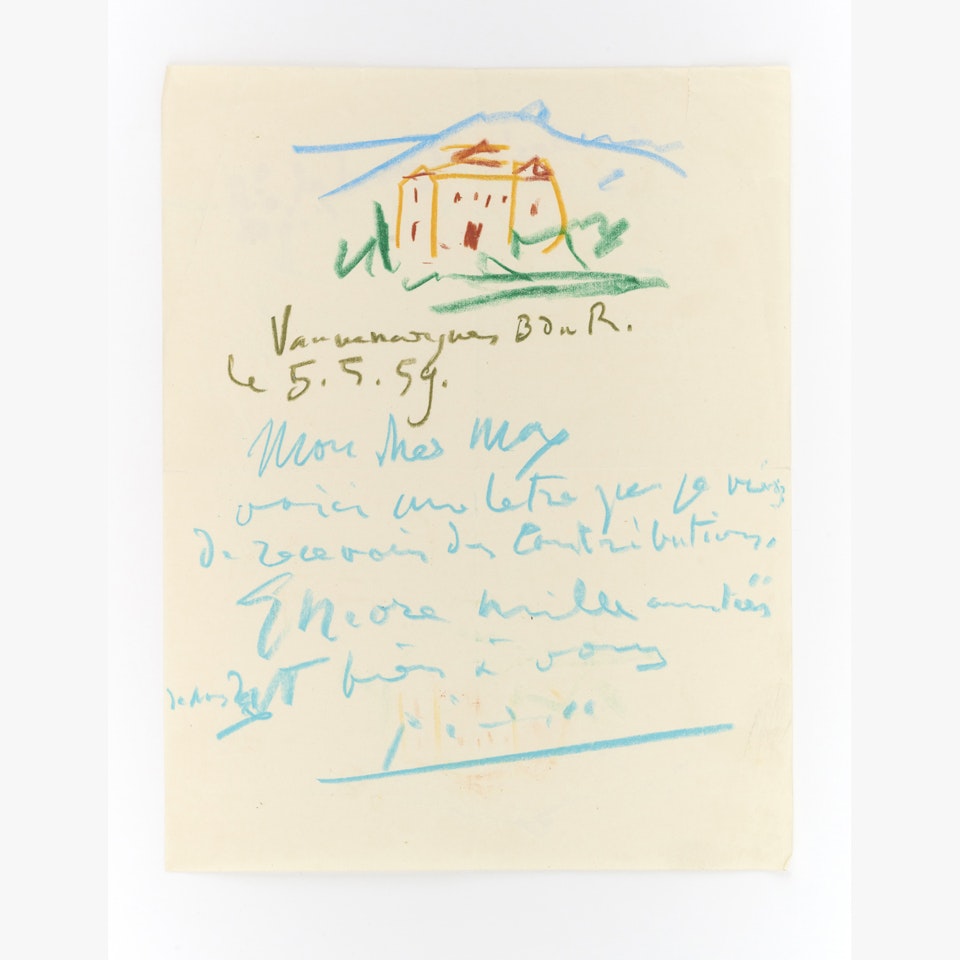 Vauvenargues B du R.
le 5.5.59.
Mon cher Max
voici une letre que je viens
de recevoir des Contributions.
Encore mille
bien à vous
Picasso